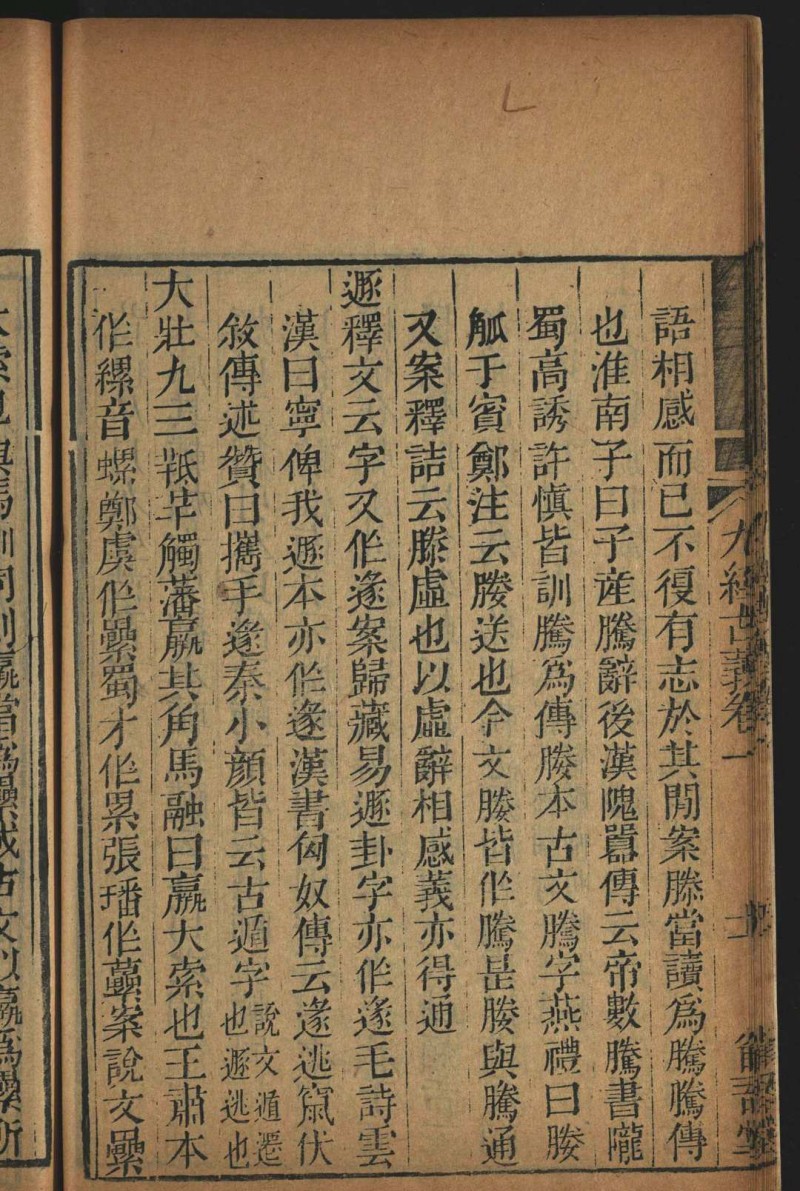 語相感而已不復有志於其閒案滕當讀爲騰騰傳
也淮南子曰子産騰辭後漢隗囂傳云帝數騰書隴
蜀高誘許愼皆訓騰爲傳媵本古文騰字燕禮曰媵
觚于賓鄭注云媵送也今文媵皆作騰是媵與騰通
又案釋詁云滕虛也以虛辭相感義亦得通
遯釋文云字又作遂案歸藏易遯卦字亦作遂毛詩雲
漢曰寧俾我遯本亦作遂漢書匈奴傳云遂逃竄伏
敘傳述贊曰攜手遂秦小顏皆云古遁字說文遁遷
也遯逃也
大壯九三羝羊觸藩羸其角馬融曰羸大索也王肅本
作縲音螺鄭虞作纍蜀才作累張璠作虆案說文纍
九經古義卷一